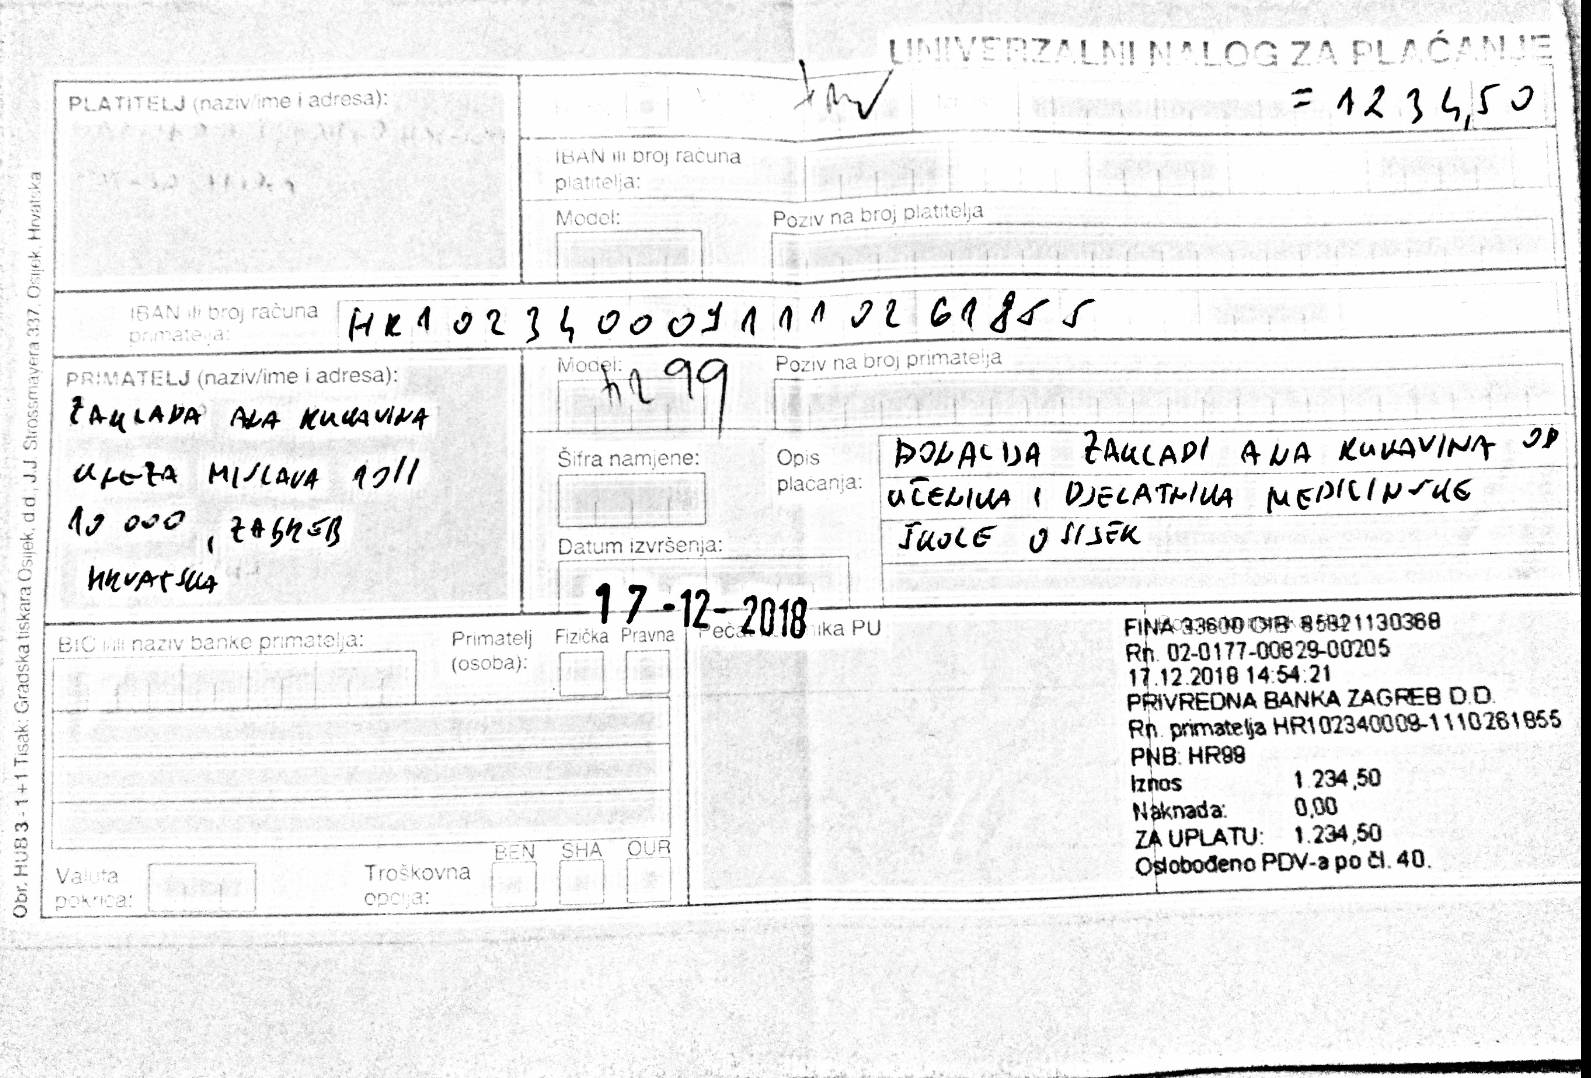 UNIVERZALNI NALOG ZA PLAĆANJE
PLATITELJ (naziv/ime i adresa):
= 1234,50
IBAN ili broj računa
platitelja:
Model:
Poziv na broj platitelja
IBAN ili broj računa
primatelja:
HR1023400091110261855
PRIMATELJ (naziv/ime i adresa):
ZAKLADA ANA RUKAVINA
KNEZA MISLAVA 10/I
10 000, ZAGREB
HRVATSKA
Model:
hr 99
Poziv na broj primatelja
Šifra namjene:
Opis
plaćanja:
DONACIJA ZAKLADI ANA RUKAVINA OD
UČENIKA I DJELATNIKA MEDICINSKE
ŠKOLE OSIJEK
Datum izvršenja:
17-12-2018
BIC ili naziv banke primatelja:
Primatelj
(osoba):
Fizička
Pravna
PU
Valuta
pokrića:
Troškovna
opcija:
BEN
SHA
OUR
FINA 33600 OIB 85821130368
Rn. 02-0177-00829-00205
17.12.2018 14:54:21
PRIVREDNA BANKA ZAGREB D.D.
Rn. primatelja HR102340009-1110261855
PNB: HR99
Iznos 1.234,50
Naknada: 0,00
ZA UPLATU: 1.234,50
Oslobođeno PDV-a po čl. 40.
Obr. HUB 3 - 1 + 1 Tisak: Gradska tiskara Osijek, d.d. J.J. Strossmayera 337, Osijek, Hrvatska